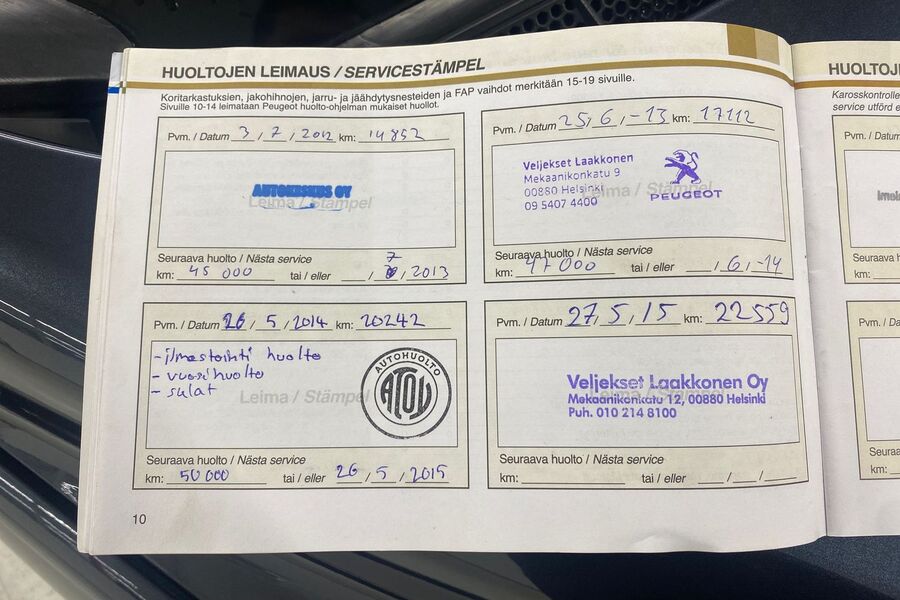 HUOLTOJEN LEIMAUS / SERVICESTÄMPEL
Koritarkastuksien, jakohihnojen, jarru- ja jäähdytysnesteiden ja FAP vaihdot merkitään 15-19 sivuille.
Sivuille 10-14 leimataan Peugeot huolto-ohjelman mukaiset huollot.
Pvm. / Datum 3 / 7 / 2012 km: 14852
AUTOKESKUS OY
Leima / Stämpel
Seuraava huolto / Nästa service
7
km: 45 000 tai / eller / / 2013
Pvm. / Datum 25, 6, -13 km: 17112
Veljekset Laakkonen
Mekaanikonkatu 9
00880 Helsinki
09 5407 4400
PEUGEOT
Leima / Stämpel
Seuraava huolto / Nästa service
km: 47000 tai / eller / 6, -14
Pvm. / Datum 26 / 5 / 2014 km: 20242
- ilmastointi huolto
- vuosihuolto
- sulat
AUTOHUOLTO
ATOY
Leima / Stämpel
Seuraava huolto / Nästa service
km: 50 000 tai / eller 26 / 5 / 2015
Pvm. / Datum 27, 5, 15 km: 22559
Veljekset Laakkonen Oy
Mekaanikonkatu 12, 00880 Helsinki
Puh. 010 214 8100
Seuraava huolto / Nästa service
km: tai / eller / /
10
HUOLTOJ
Karosskontrolle
service utförd e
Pvm. / Da
Seuraava h
km:
Pvm. / Da
Seuraava
km: